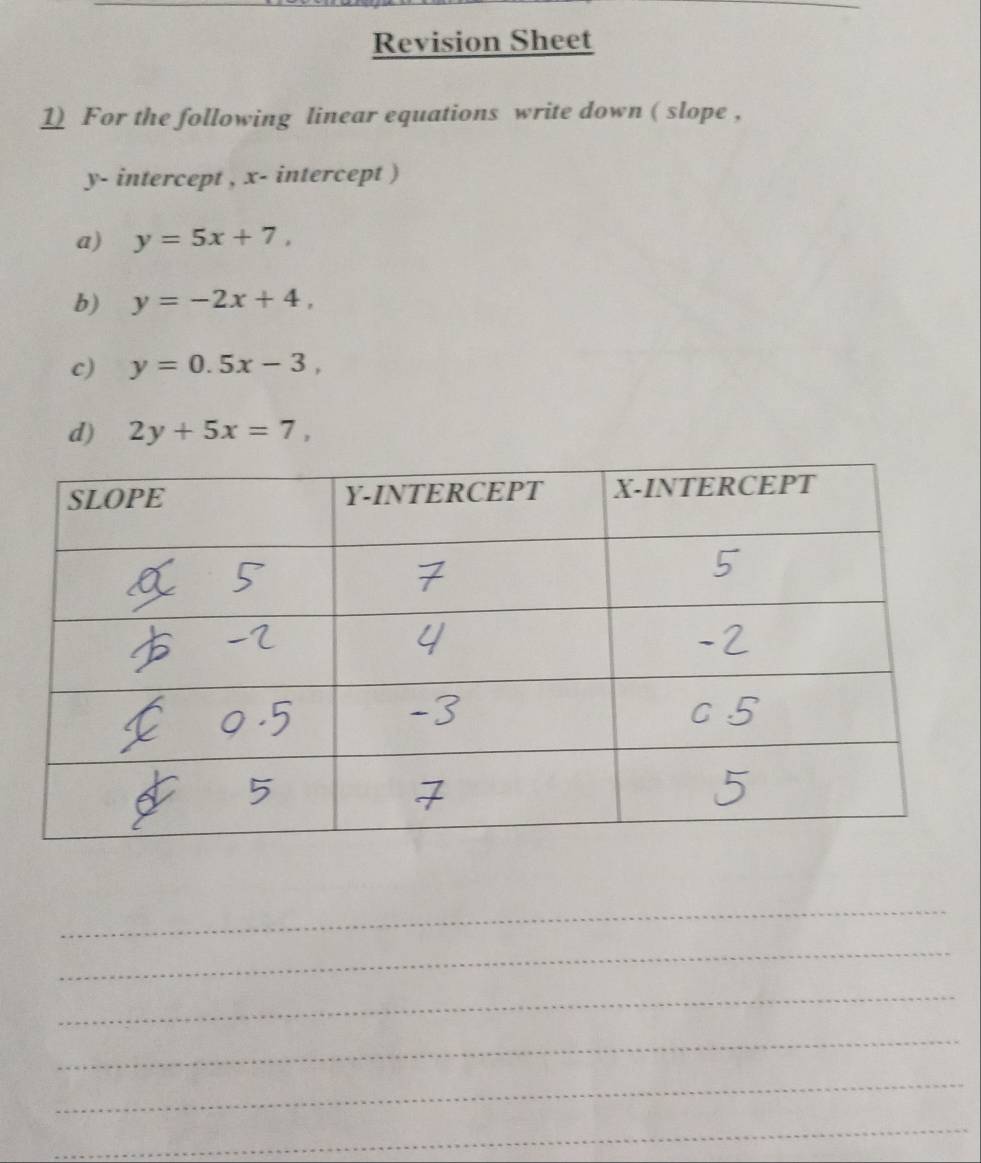 Revision Sheet
1) For the following linear equations write down ( slope ,
y- intercept , x- intercept )
a) y = 5x + 7 ,
b) y = -2x + 4 ,
c) y = 0.5x - 3 ,
d) 2y + 5x = 7 ,
SLOPE Y-INTERCEPT X-INTERCEPT
a 5 7 5
b -2 4 -2
c 0.5 -3 0.5
d 5 7 5